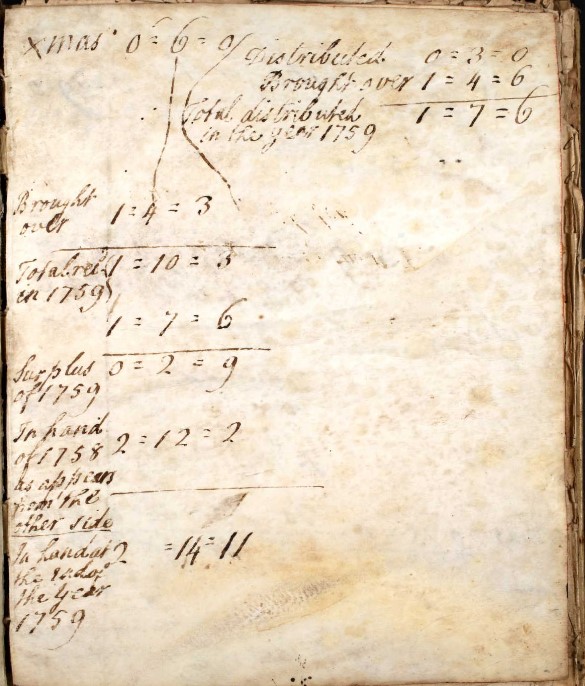 Xmas 0 = 6 = 9
Distributed 0 = 3 = 0
Brought over 1 = 4 = 6
Total distributed 1 = 7 = 6
in the year 1759
Brought
over 1 = 4 = 3
Total rec.d 1 = 10 = 3
in 1759
1 = 7 = 6
Surplus 0 = 2 = 9
of 1759
In hand
of 1758 2 = 12 = 2
as appears
from the
other side
In hand at 2 = 14 = 11
the end of
the year
1759